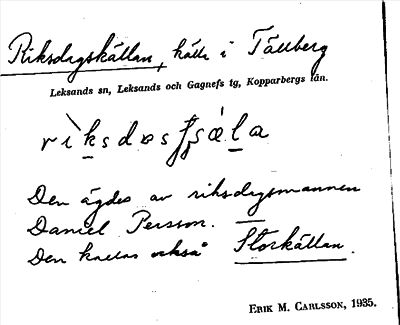 Riksdagskällan, källa i Tällberg
Leksands sn, Leksands och Gagnefs tg, Kopparbergs län.
Den ägdes av riksdagsmannen
Daniel Persson.
Den kallas också Storkällan.
ERIK M. CARLSSON, 1935.